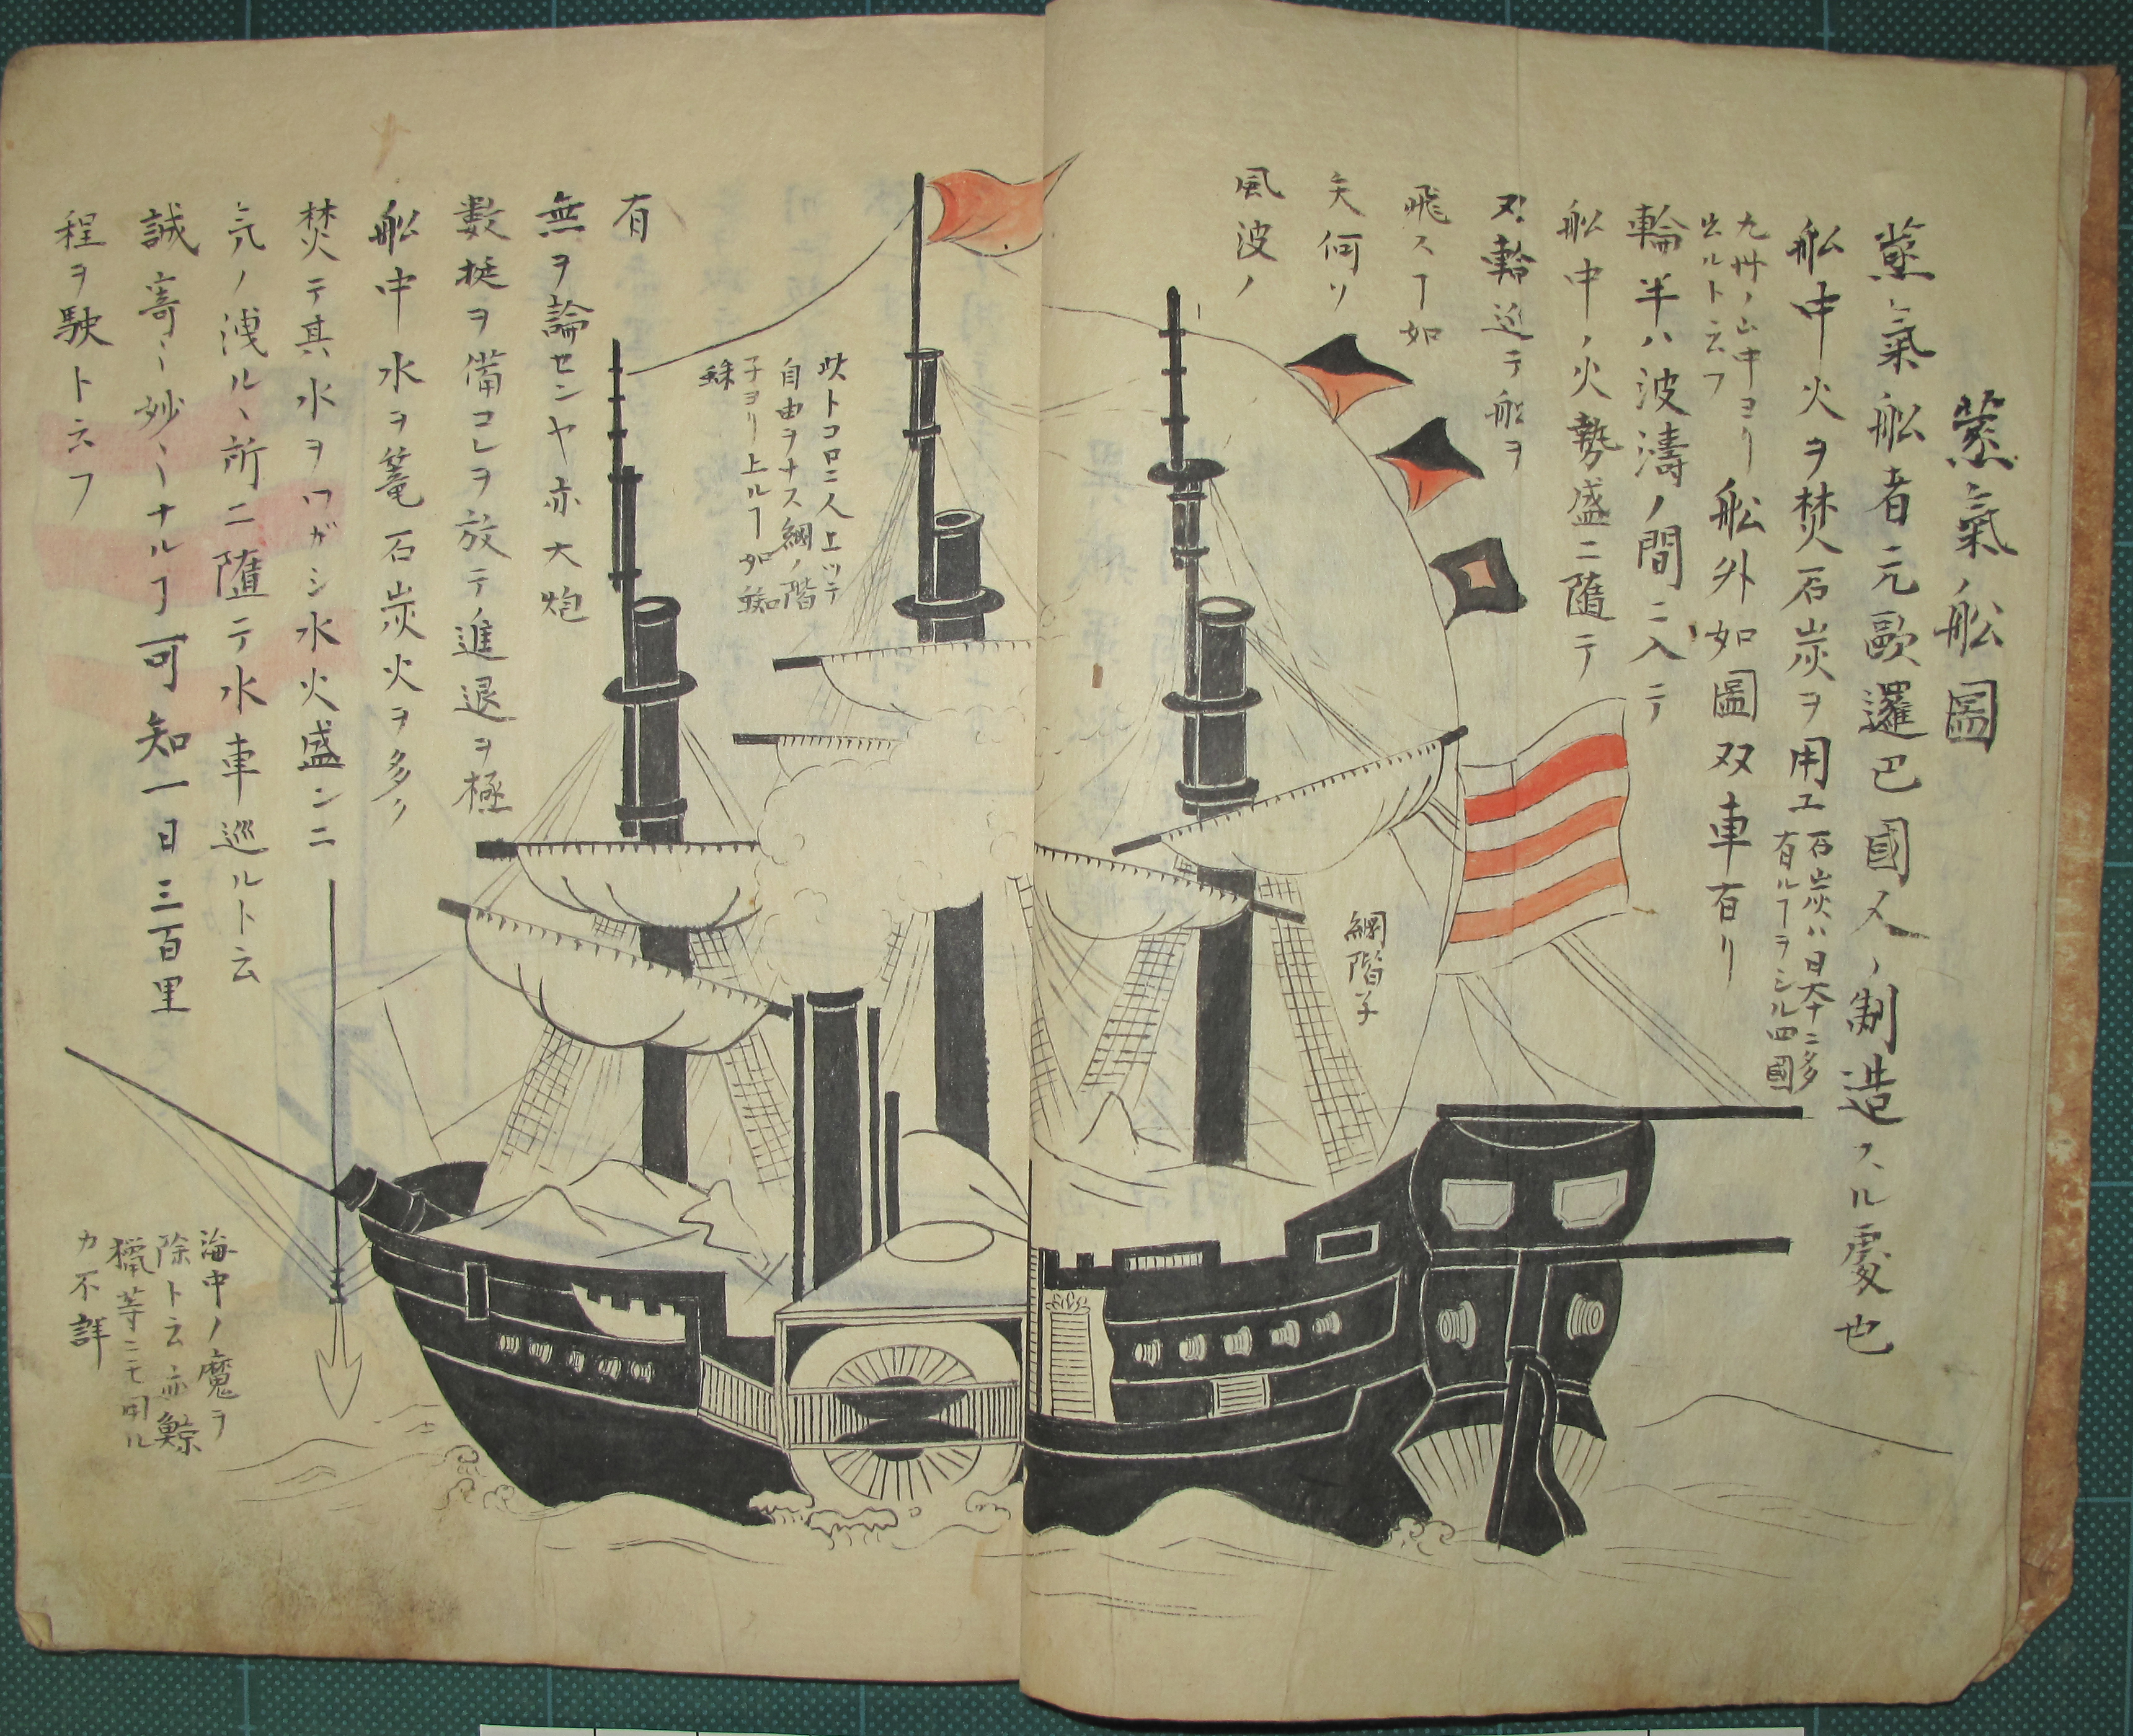 蒸氣ノ舩圖
蒸氣舩者元歐邏巴國人ノ制造スル處也
舩中火ヲ焚石炭ヲ用エ
石炭ハ日本ニ多
有ルヿヲシル四國
九州ノ山中ヨリ
出ルト云フ
舩外如圖双車有リ
輪半ハ波濤ノ間ニ入テ
舩中ノ火勢盛ニ隨テ
双輪巡テ船ヲ
飛スヿ如
矢何ソ
風波ノ
網階子
有
無ヲ論センヤ亦大炮
數挺ヲ備コレヲ放テ進退ヲ極
舩中水ヲ篭石炭火ヲ多ク
焚テ其水ヲワガシ水火盛ンニ
気ノ洩ル丶所ニ隨テ水車巡ルト云
誠寄〻妙〻ナルヿ可知一日三百里
程ヲ駛ト云フ
此トコロニ人上ツテ
自由ヲナス網ノ階
子ヨリ上ルヿ如蜘
蛛
海中ノ魔ヲ
除ト云亦鯨
獵等ニモ用ル
カ不詳